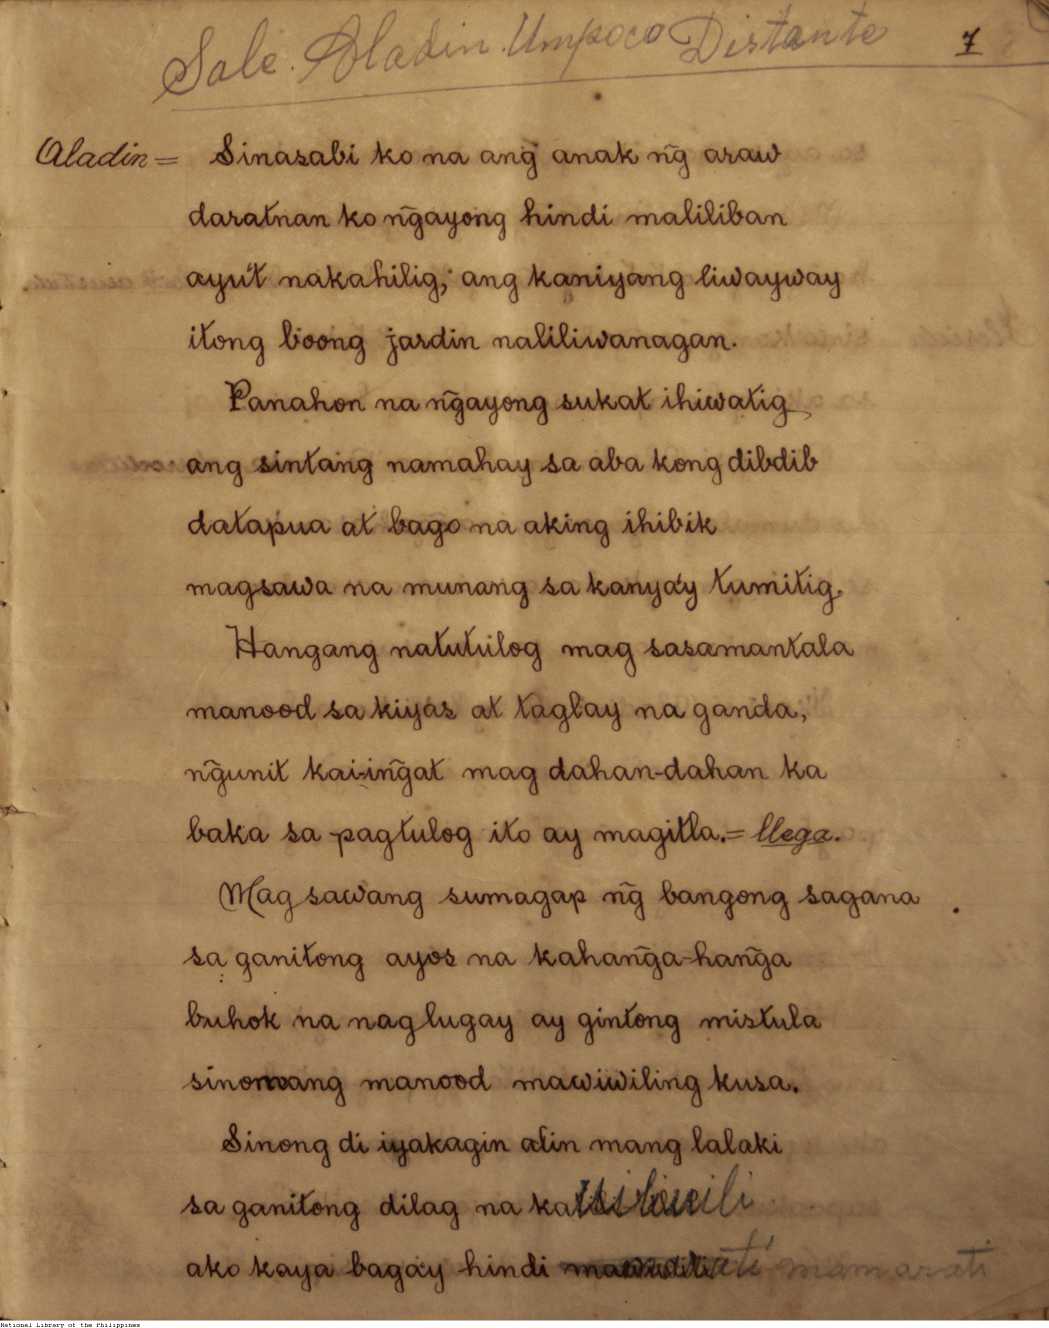 Sale. Aladin. Umpoco Distante 7
Aladin = Sinasabi ko na ang anak ng̃ araw
daratnan ko ng̃ayong hindi maliliban
ayu't nakahilig, ang kaniyang liwayway
itong boong jardin naliliwanagan.
Panahon na ng̃ayong sukat ihiwatig
ang sintang namahay sa aba kong dibdib
datapua at bago na aking ihibik
magsawa na munang sa kanya'y tumitig,
Hangang natutulog mag sasamantala
manood sa kiyas at taglay na ganda,
ng̃unit kai-ing̃at mag dahan-dahan ka
baka sa pagtulog ito ay magitla. = llega.
Mag sawang sumagap ng̃ bangong sagana
sa ganitong ayos na kahang̃a-hang̃a
buhok na naglugay ay gintong mistula
manood mawiwiling kusa.
Sinong di iyakagin alin mang lalaki
sa ganitong dilag na
ako kaya baga'y hindi mamarati
National Library of the Philippines